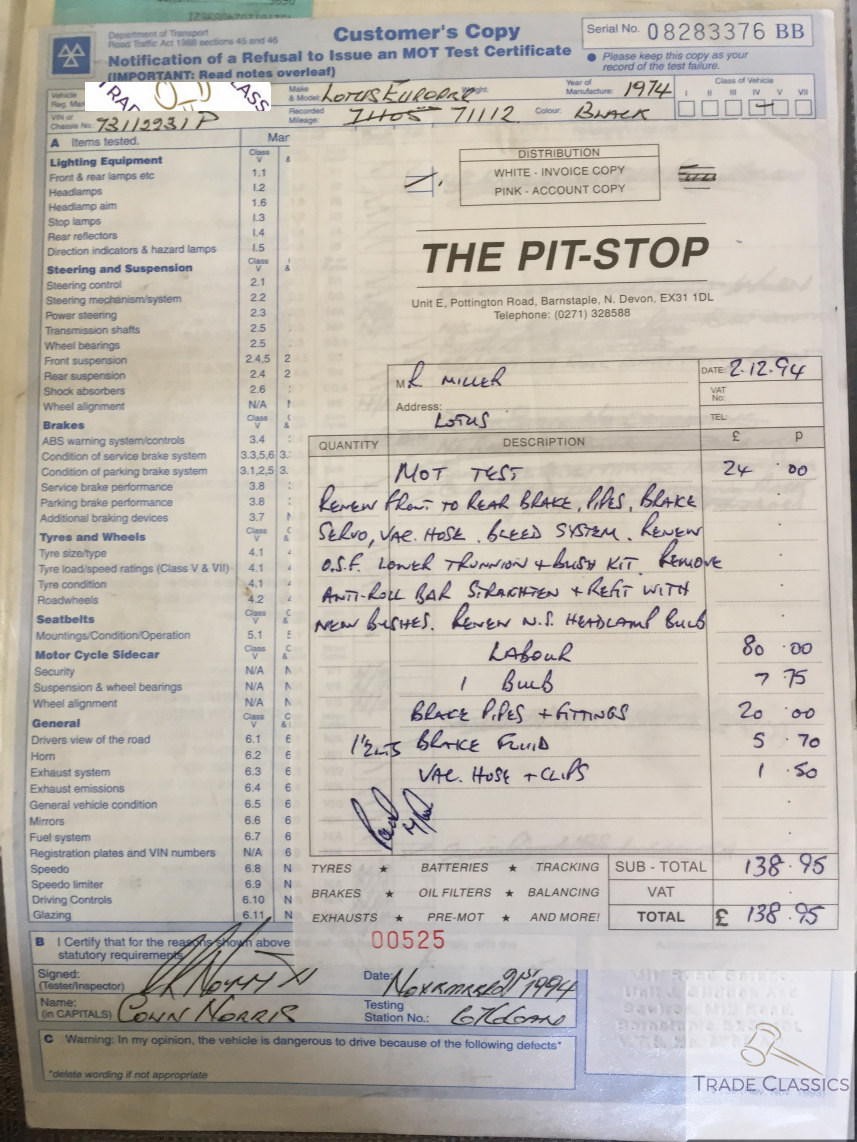 Department of Transport
Road Traffic Act 1988 sections 45 and 46
Customer's Copy
Notification of a Refusal to Issue an MOT Test Certificate
(IMPORTANT: Read notes overleaf)
Serial No. 08283376 BB
● Please keep this copy as your
record of the test failure.
Vehicle
Reg. Mar
Make
& Model: LOTUS EUROPA
Weight:
Year of
Manufacture: 1974
Class of Vehicle
I II III IV V VII
VIN or
Chassis No. 73112931P
Recorded
Mileage: 71112
Colour: BLACK
A Items tested.
Mar
Lighting Equipment Class V &
Front & rear lamps etc 1.1
Headlamps 1.2
Headlamp aim 1.6
Stop lamps 1.3
Rear reflectors 1.4
Direction indicators & hazard lamps 1.5
Steering and Suspension Class V &
Steering control 2.1
Steering mechanism/system 2.2
Power steering 2.3
Transmission shafts 2.5
Wheel bearings 2.5
Front suspension 2.4,5 2
Rear suspension 2.4 2
Shock absorbers 2.6
Wheel alignment N/A
Brakes Class V &
ABS warning system/controls 3.4
Condition of service brake system 3.3,5,6 3.
Condition of parking brake system 3.1,2,5 3.
Service brake performance 3.8
Parking brake performance 3.8
Additional braking devices 3.7
Tyres and Wheels Class V &
Tyre size/type 4.1
Tyre load/speed ratings (Class V & VII) 4.1
Tyre condition 4.1
Roadwheels 4.2
Seatbelts Class V &
Mountings/Condition/Operation 5.1
Motor Cycle Sidecar Class V &
Security N/A
Suspension & wheel bearings N/A
Wheel alignment N/A
General Class V &
Drivers view of the road 6.1 6
Horn 6.2 6
Exhaust system 6.3 6
Exhaust emissions 6.4 6
General vehicle condition 6.5 6
Mirrors 6.6 6
Fuel system 6.7 6
Registration plates and VIN numbers N/A 6
Speedo 6.8 N
Speedo limiter 6.9 N
Driving Controls 6.10 N
Glazing 6.11 N
DISTRIBUTION
WHITE - INVOICE COPY
PINK - ACCOUNT COPY
THE PIT-STOP
Unit E, Pottington Road, Barnstaple, N. Devon, EX31 1DL
Telephone: (0271) 328588
MR MILLER
DATE: 2.12.94
VAT
No:
Address:
LOTUS
TEL:
QUANTITY DESCRIPTION £ p
MOT TEST 24 .00
RENEW FRONT TO REAR BRAKE, PIPES, BRAKE
SERVO, VAC. HOSE, BLEED SYSTEM. RENEW
O.S.F. LOWER TRUNNION + BUSH KIT. REMOVE
ANTI-ROLL BAR STRAIGHTEN + REFIT WITH
NEW BUSHES. RENEW N.S. HEADLAMP BULB
LABOUR 80 .00
1 BULB 7 .75
BRAKE PIPES + FITTINGS 20 .00
BRAKE FLUID 5 .70
VAC. HOSE + CLIPS 1 .50
TYRES ★ BATTERIES ★ TRACKING SUB - TOTAL 138.95
BRAKES ★ OIL FILTERS ★ BALANCING VAT
EXHAUSTS ★ PRE-MOT ★ AND MORE! TOTAL £ 138.95
00525
B I Certify that for the reasons shown above
statutory requirements
Signed:
(Tester/Inspector)
Date: NOVEMBER 21ST 1994
Name:
(in CAPITALS) COLIN NORRIS
Testing
Station No.:
C Warning: In my opinion, the vehicle is dangerous to drive because of the following defects*
*delete wording if not appropriate
TRADE CLASSICS